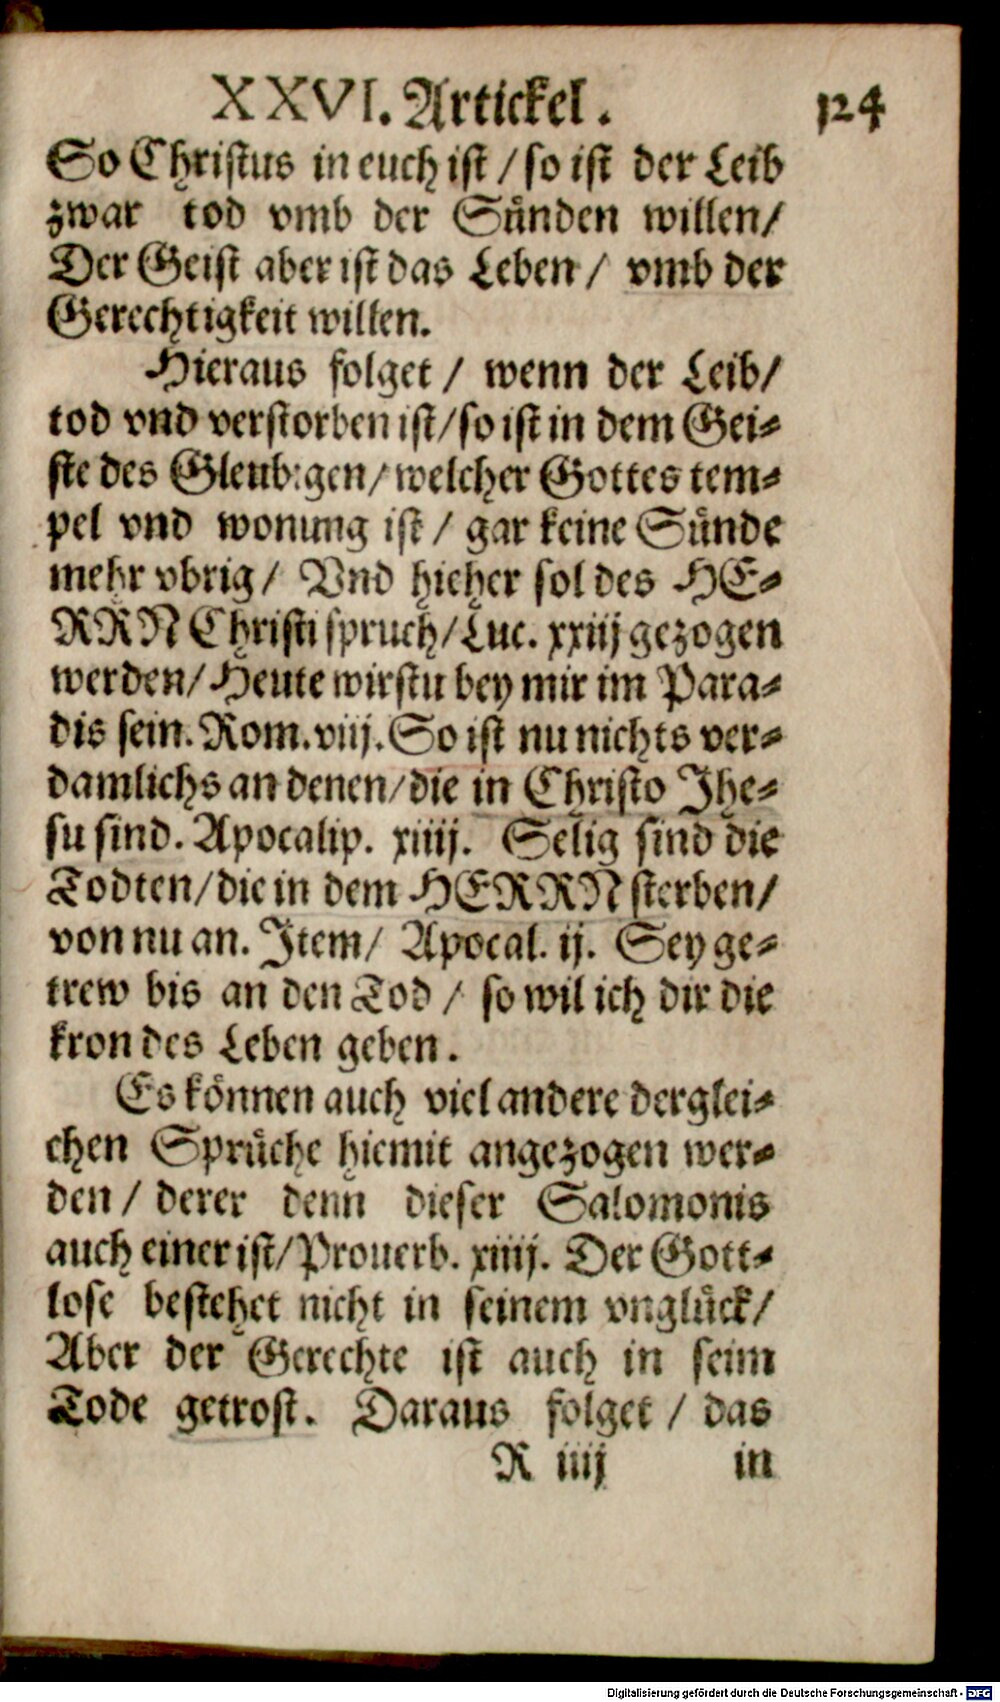 XXVI. Artickel. 124
So Christus in euch ist / so ist der Leib
zwar tod vmb der Sünden willen /
Der Geist aber ist das Leben / vmb der
Gerechtigkeit willen.
Hieraus folget / wenn der Leib /
tod vnd verstorben ist / so ist in dem Gei-
ste des Gleubigen / welcher Gottes tem-
pel vnd wonung ist / gar keine Sünde
mehr vbrig / Vnd hieher sol des HE-
RRN Christi spruch / Luc. xxiij gezogen
werden / Heute wirstu bey mir im Para-
dis sein. Rom. viij. So ist nu nichts ver-
damlichs an denen / die in Christo Jhe-
su sind. Apocalip. xiiij. Selig sind die
Todten / die in dem HERRN sterben /
von nu an. Item / Apocal. ij. Sey ge-
trew bis an den Tod / so wil ich dir die
kron des Leben geben.
Es können auch viel andere derglei-
chen Sprüche hiemit angezogen wer-
den / derer denn dieser Salomonis
auch einer ist / Prouerb. xiiij. Der Gott-
lose bestehet nicht in seinem vnglück /
Aber der Gerechte ist auch in seim
Tode getrost. Daraus folget / das
R iiij in
Digitalisierung gefördert durch die Deutsche Forschungsgemeinschaft - DFG